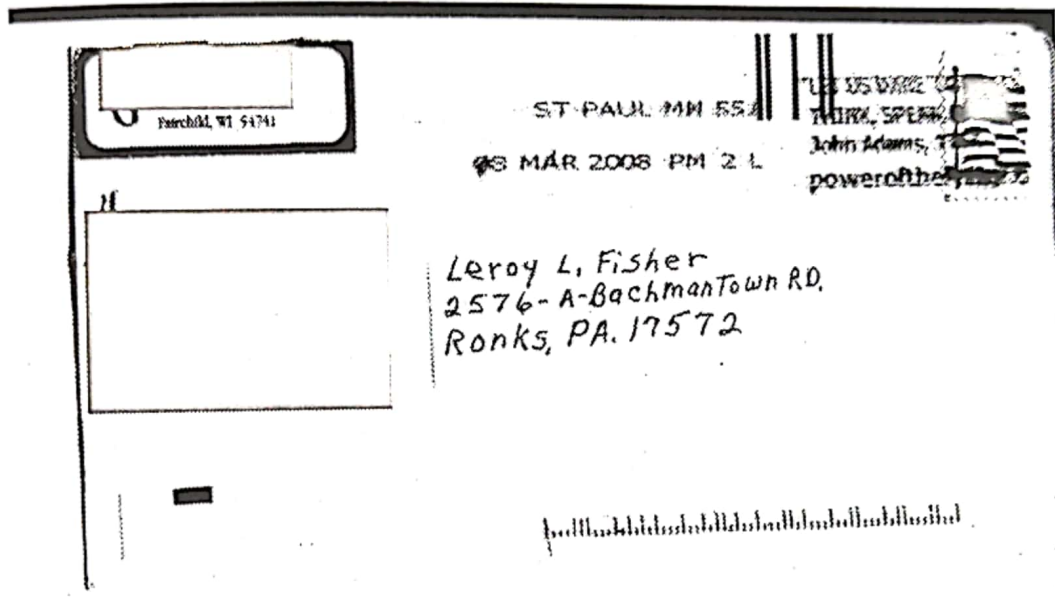 Fairchild, WI 54741
ST PAUL MN 55
08 MAR 2008 PM 2 L
LET US DARE TO
THINK, SPEAK,
John Adams,
powerofthe
Leroy L. Fisher
2576-A-BachmanTown RD.
Ronks, PA. 17572